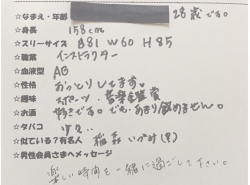 ☆なまえ・年齢 28歳です。
☆身長 158cm
☆スリーサイズ B81 W60 H85
☆職業 インストラクター
☆血液型 AB
☆性格 おっとりしてます。
☆趣味 スポーツ 音楽鑑賞
☆お酒 好きです。でも、あまり飲めません。
☆タバコ 少々
☆似ている?有名人 稲森 いずみ(?)
☆男性会員さまへメッセージ
楽しい時間を一緒に過ごして下さい。